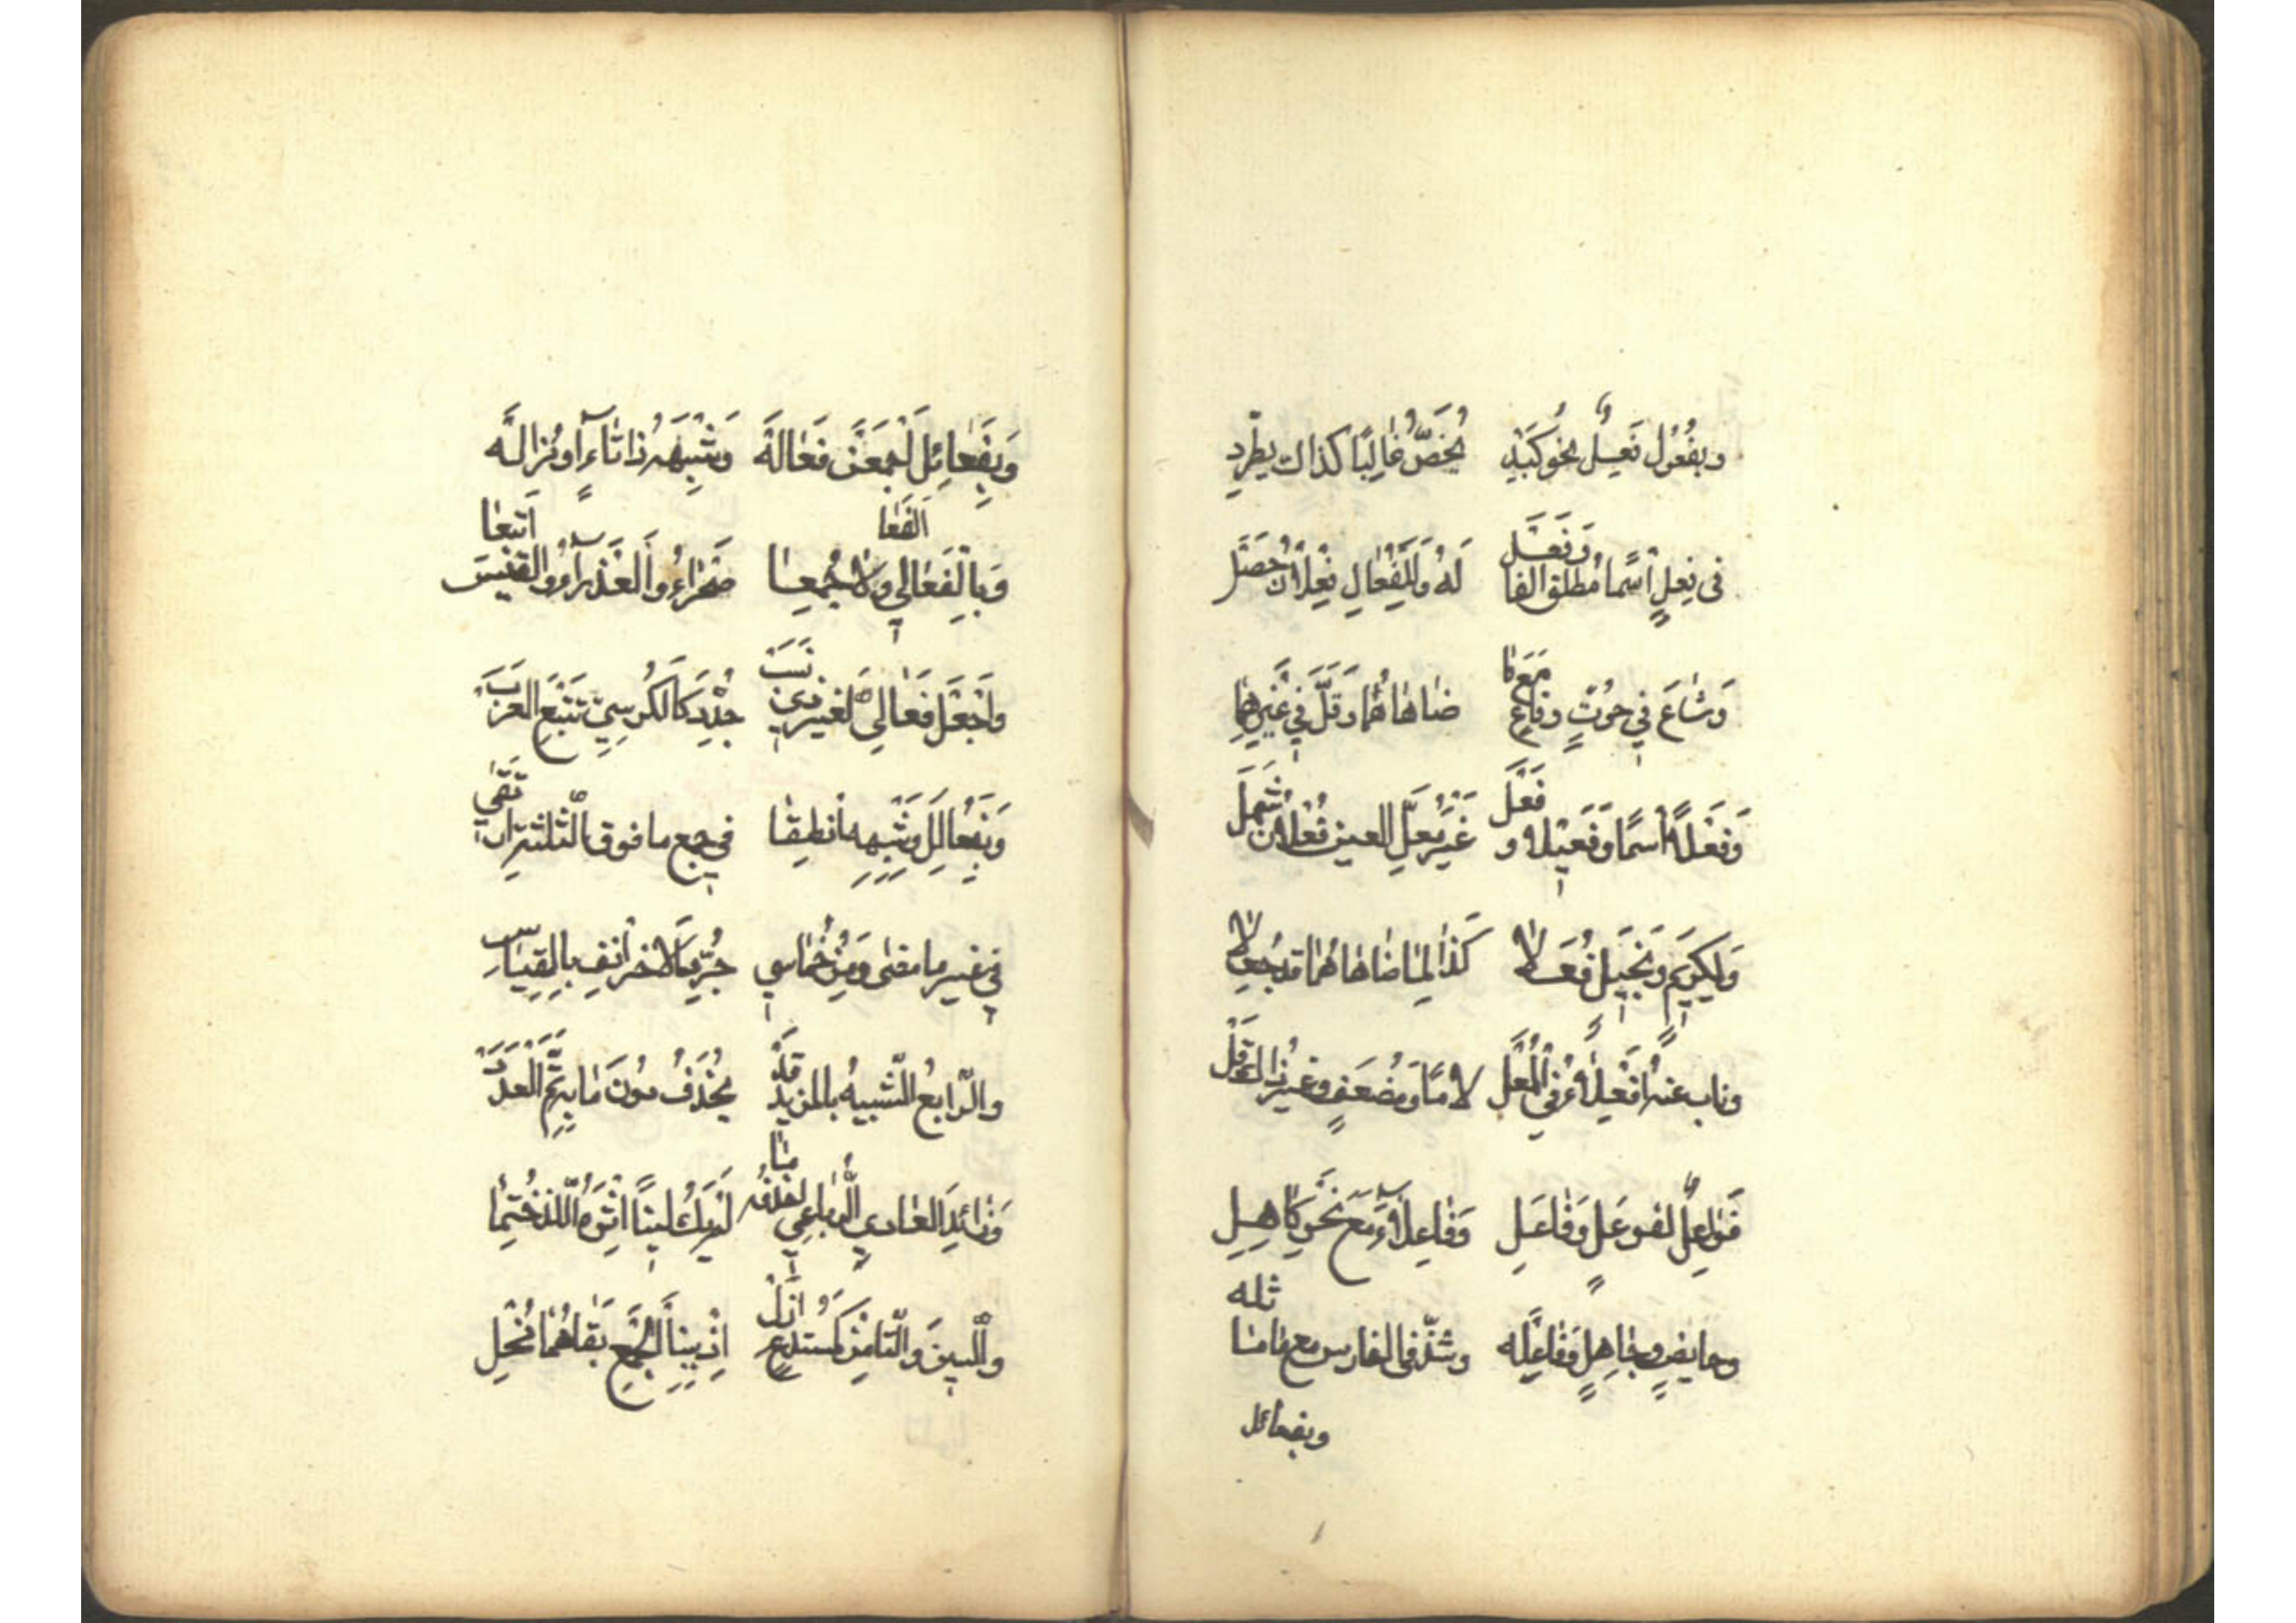 وَبِفُعُولٍ فَعِلٌ نَحْوُ كَبِدٍ يُخَصُّ غَالِبًا كَذَاكَ يَطَّرِدِ
فِي فَعْلٍ اسْمًا مُطْلَقَ الْفَا وَفَعَلْ لَهُ وَلِلْفُعَالِ فِعْلَانٌ حَصَلْ
وَشَاعَ فِي حُوتٍ وَقَاعٍ مَعَ مَا ضَاهَاهُمَا وَقَلَّ فِي غَيْرِهِمَا
وَفَعْلًا اسْمًا وَفَعِيلًا وَفَعَلْ غَيْرَ مُعَلِّ الْعَيْنِ فُعْلَانٌ شَمِلْ
وَلِكَرِيمٍ وَبَخِيلٍ فُعَلَا كَذَا لِمَا ضَاهَاهُمَا قَدْ جُعِلَا
وَنَابَ عَنْهُ أَفْعِلَاءُ فِي الْمُعَلْ لَامًا وَمُضْعَفٍ وَغَيْرُ ذَاكَ قَلْ
فَوَاعِلٌ لِفَوْعَلٍ وَفَاعَلِ وَفَاعِلَاءَ مَعَ نَحْوِ كَاهِلِ
وَحَائِضٍ وَجَاهِلٍ وَفَاعِلَهْ وَشَذَّ فِي الْفَارِسِ مَعْ مَا مَاثَلَهْ
وبفعائل
وَبِفَعَائِلَ اجْمَعَنْ فَعَالَهْ وَشِبْهَهُ ذَا تَاءٍ أَوْ مُزَالَهْ
وَبِالْفَعَالِي وَالْفَعَالَى جُمِعَا صَحْرَاءُ وَالْعَذْرَاءُ وَالْقَيْسَ اتْبَعَا
وَاجْعَلْ فَعَالِيَّ لِغَيْرِ ذِي نَسَبْ جُدِّدَ كَالْكُرْسِيِّ تَتْبَعِ الْعَرَبْ
وَبِفَعَالِلَ وَشِبْهِهِ انْطِقَا فِي جَمْعِ مَا فَوْقَ الثَّلَاثَةِ ارْتَقَى
فِي غَيْرِ مَا مَضَى وَمِنْ خُمَاسِي جُرِّدَ الْآخِرَ انْفِ بِالْقِيَاسِ
وَالرَّابِعُ الشَّبِيهُ بِالْمَزِيدِ قَدْ يُحْذَفُ دُونَ مَا بِهِ تَمَّ الْعَدَدْ
وَزَائِدَ الْعَادِي الرُّبَاعِي احْذِفْهُ مَا لَمْ يَكُ لَيْنًا إِثْرَهُ اللَّذْ خَتَمَا
وَالسِّينَ وَالتَّا مِنْ كَمُسْتَدْعٍ أَزِلْ إِذْ بِبِنَا الْجَمْعِ بَقَاهُمَا مُخِلْ